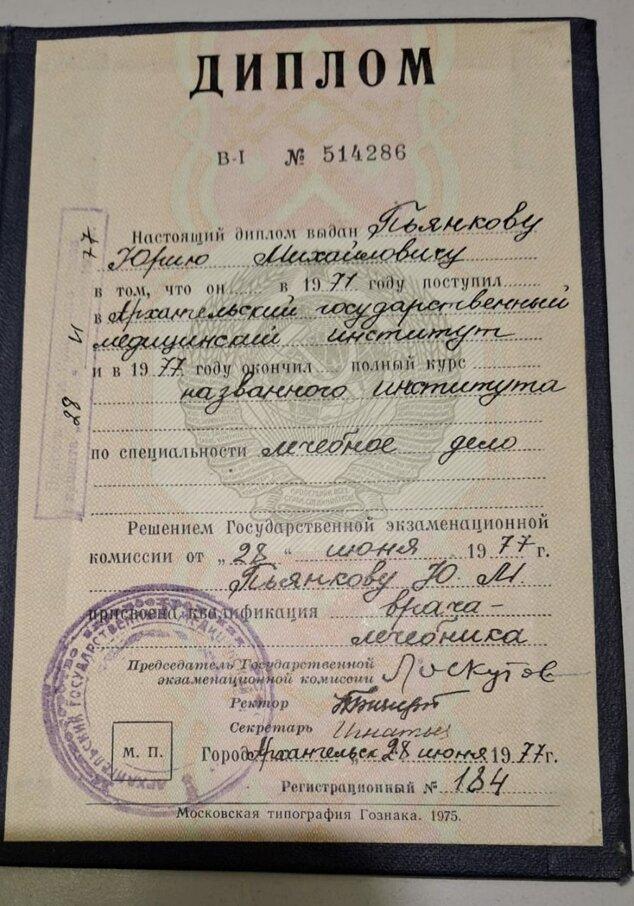 ДИПЛОМ
В-I № 514286
Настоящий диплом выдан Пьянкову
Юрию Михайловичу
в том, что он в 1971 году поступил
в Архангельский государственный
медицинский институт
и в 1977 году окончил полный курс
названного института
по специальности лечебное дело
Решением Государственной экзаменационной
комиссии от „28“ июня 1977 г.
Пьянкову Ю. М.
присвоена квалификация врача-
лечебника
Председатель Государственной
экзаменационной комиссии Лоскутов
Ректор
Секретарь
М. П.
Город Архангельск 28 июня 1977 г.
Регистрационный № 184
Московская типография Гознака. 1975.
28 VI 77